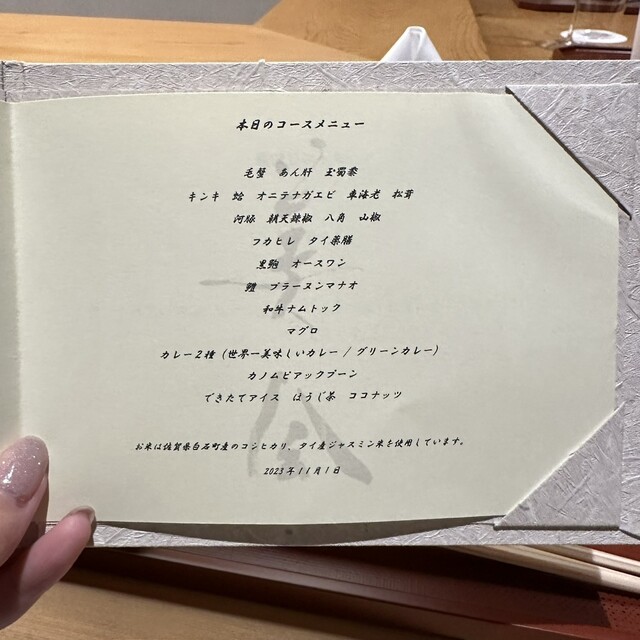 本日のコースメニュー
毛蟹 あん肝 玉蜀黍
キンキ 蛤 オニテナガエビ 車海老 松茸
河豚 朝天辣椒 八角 山椒
フカヒレ タイ薬膳
黒鮑 オースワン
鱧 プラーヌンマナオ
和牛ナムトック
マグロ
カレー2種 (世界一美味しいカレー / グリーンカレー)
カノムピアックプーン
できたてアイス ほうじ茶 ココナッツ
お米は佐賀県白石町産のコシヒカリ、タイ産ジャスミン米を使用しています。
2023年11月1日